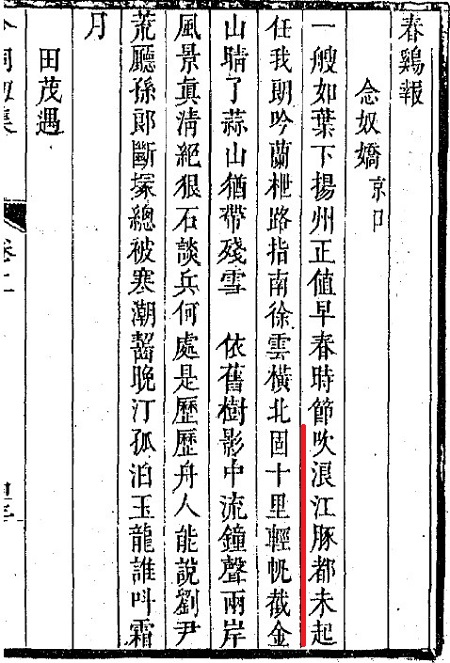 春鷄報
念奴嬌 京口
一艘如葉下揚州正值早春時節吹浪江豚都未起
任我朗吟蘭枻路指南徐雲橫北固十里輕帆截金
山晴了蒜山猶帶殘雪　依舊樹影中流鐘聲兩岸
風景眞清絕狠石談兵何處是歷歷舟人能說劉尹
荒廳孫郎斷塚總被寒潮齧晚汀孤泊玉龍誰呌霜
月
田茂遇